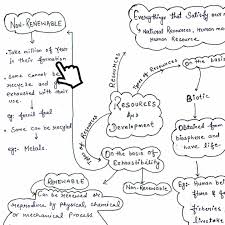 NON-RENEWABLE
- Take million of Year
in their formation
- Some cannot be
recycle and
exhausted with their
use.
eg:- fossil fuel
- Some can be recycled
eg:- Metals.
Everything that Satisfy our
→ Natural Resources, Human made
Human Resource
Resources
Types of Resources
On the basis
Biotic
Obtained from
biosphere and
have life.
Eg:- Human bei
fisheries
livestock
RESOURCES
And
Development
Types of Resources
On the basis of
Exhaustibility
RENEWABLE
Non-RENEWABLE
Can be Renewed or
Reproduce by Physical, chemical
or mechanical Process